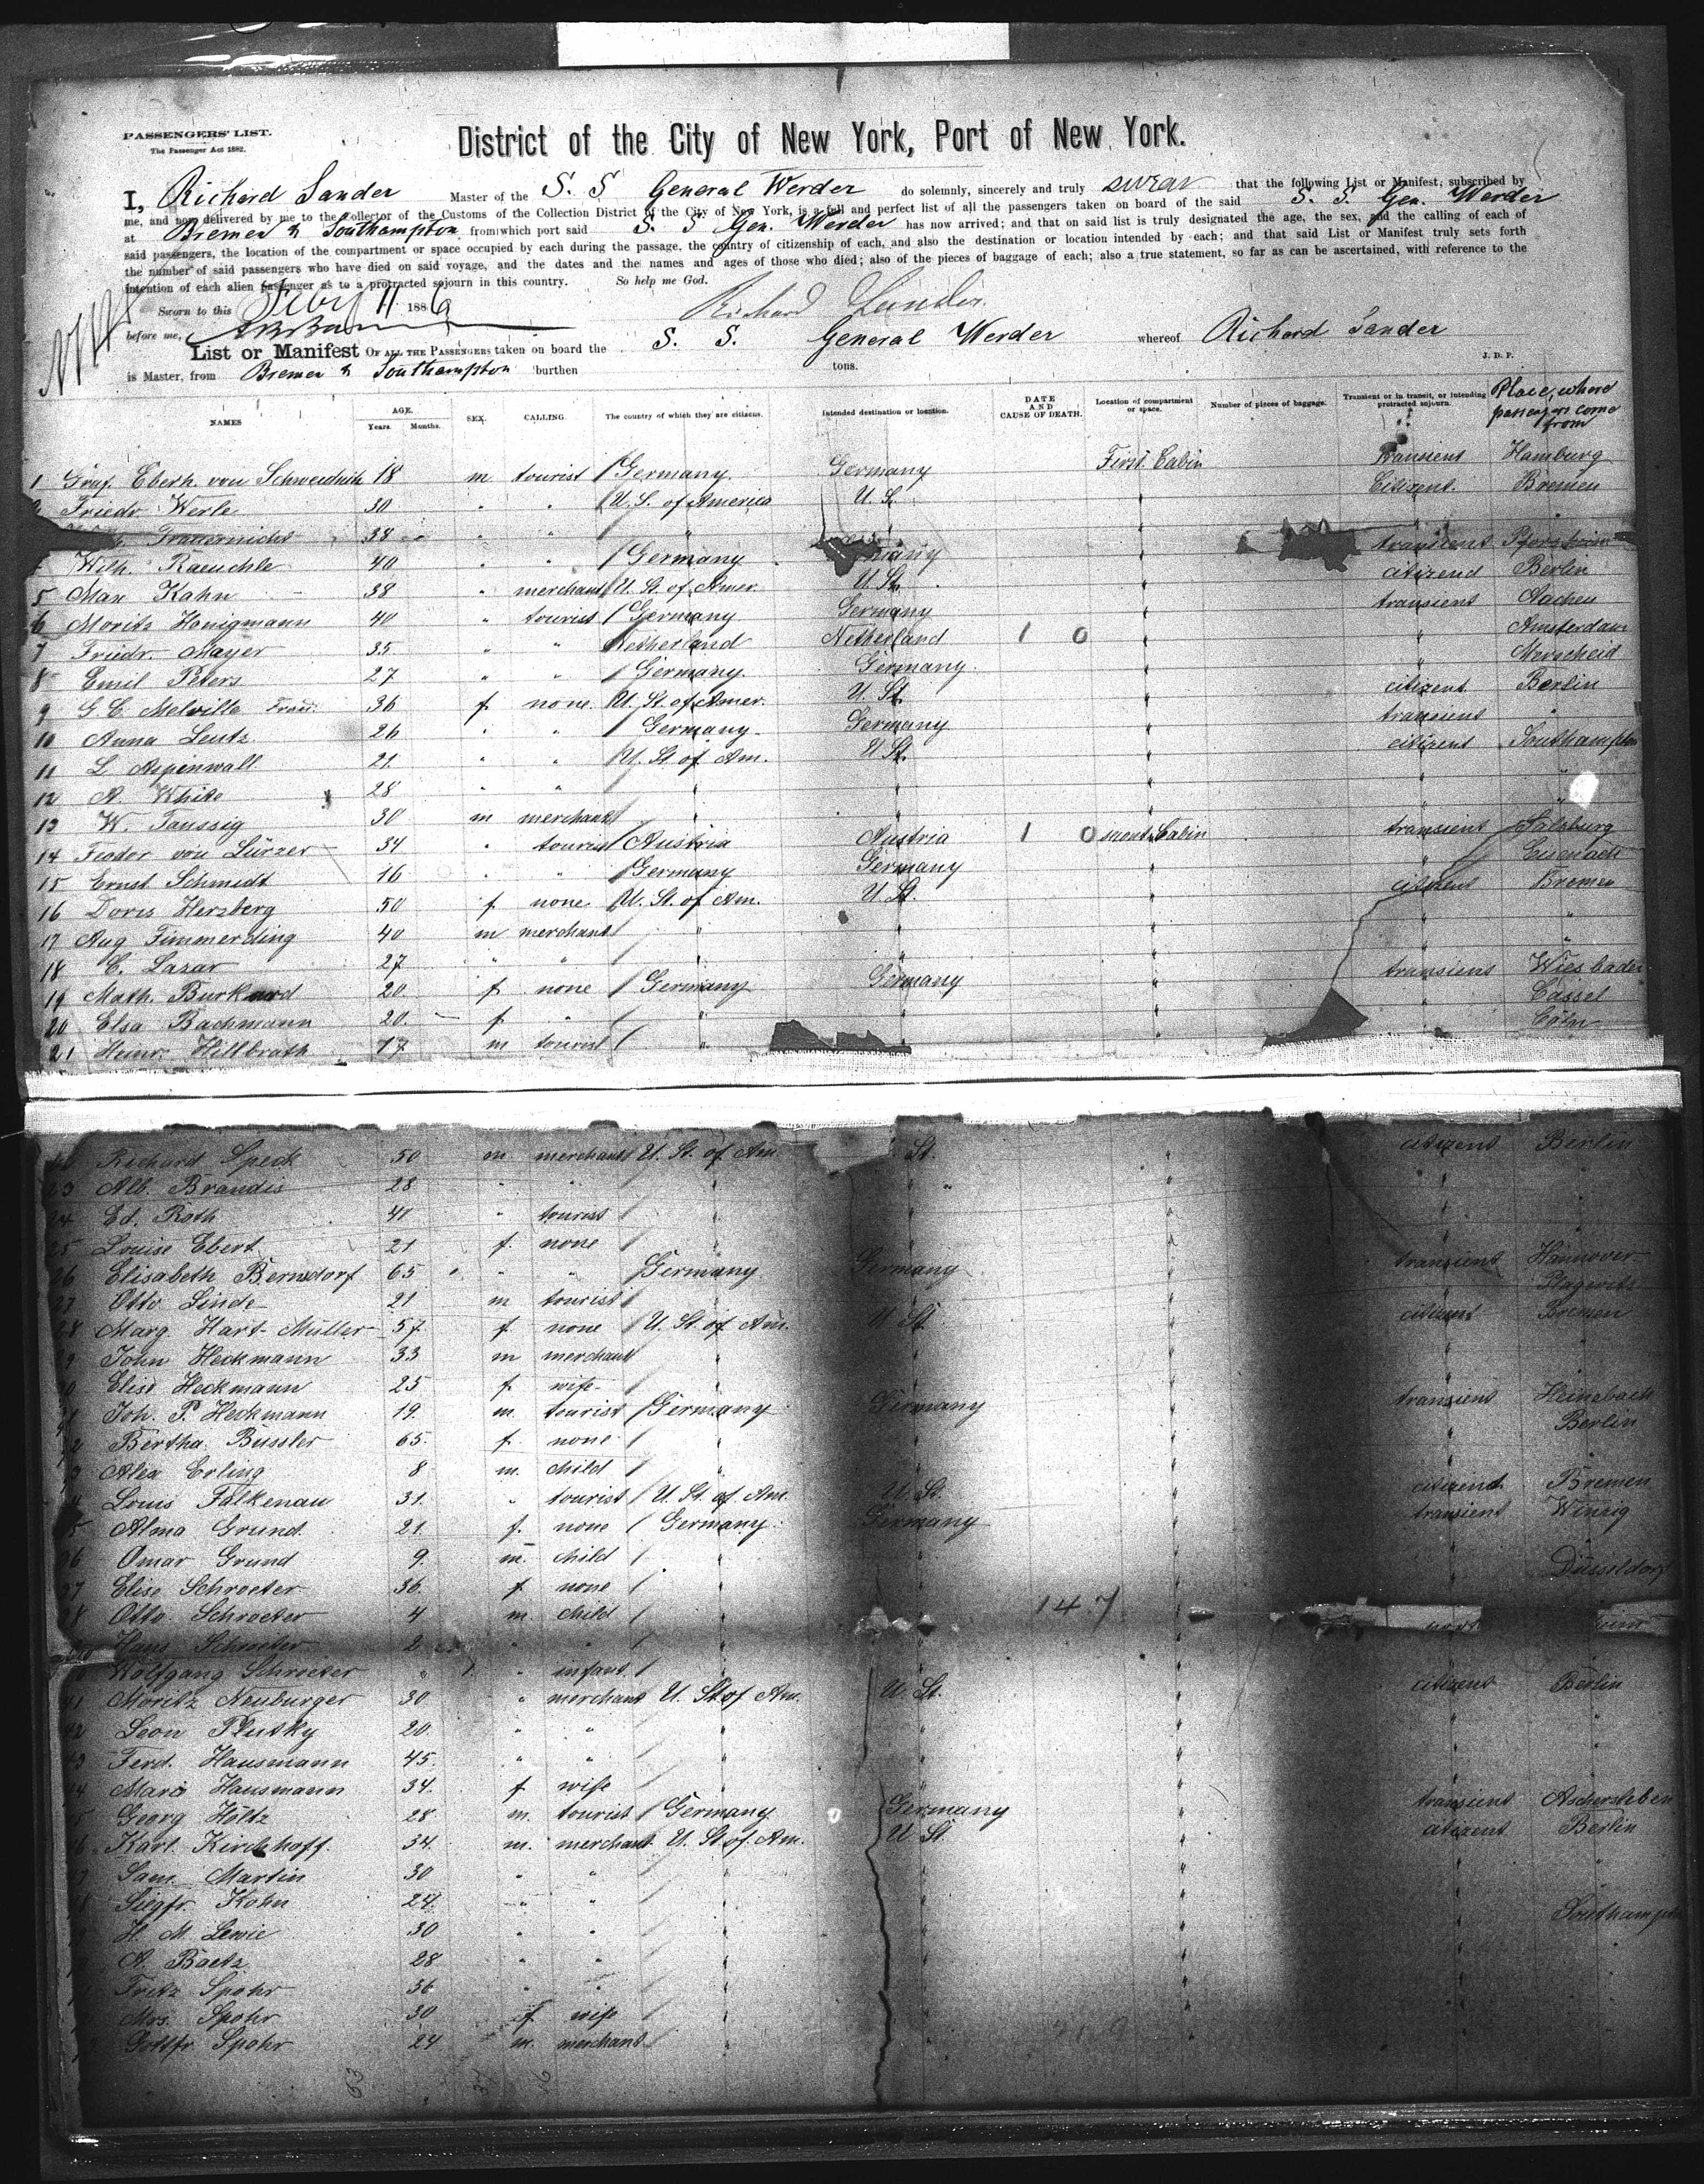 PASSENGERS' LIST.
The Passenger Act 1882.
District of the City of New York, Port of New York.
I, Richard Sander Master of the S. S General Werder do solemnly, sincerely and truly swear that the following List or Manifest, subscribed by
me, and now delivered by me to the Collector of the Customs of the Collection District of the City of New York, is a full and perfect list of all the passengers taken on board of the said S. S. Gen. Werder
at Bremen & Southampton from which port said S. S Gen. Werder has now arrived; and that on said list is truly designated the age, the sex, and the calling of each of
said passengers, the location of the compartment or space occupied by each during the passage, the country of citizenship of each, and also the destination or location intended by each; and that said List or Manifest truly sets forth
the number of said passengers who have died on said voyage, and the dates and the names and ages of those who died; also of the pieces of baggage of each; also a true statement, so far as can be ascertained, with reference to the
intention of each alien passenger as to a protracted sojourn in this country. So help me God.
Sworn to this Febry 11 1886 Richard Sander.
before me,
List or Manifest OF ALL THE PASSENGERS taken on board the S. S. General Werder whereof Richard Sander
is Master, from Bremen & Southampton burthen tons. J. D. P.
NAMES AGE. Years. Months. SEX. CALLING. The country of which they are citizens. Intended destination or location. DATE AND CAUSE OF DEATH. Location of compartment or space. Number of pieces of baggage. Transient or in transit, or intending protracted sojourn. Place, where passengers come from
1 Graf. Eberh. von Schweidnitz 18 m tourist Germany Germany First Cabin transient Hamburg
2 Friedr. Werle 30 " " U. S. of America U. S. " Citizent. Bremen
Frauernicht 38 " " " "
Wilh. Raeuchle 40 " " Germany " transient
5 Max Kahn 38 " merchant U. St. of Amer. U. St. " citizend Berlin
6 Moritz Honigmann 40 " tourist Germany Germany " transient Aachen
7 Friedr. Mayer 35 " " Netherland Netherland 1 0 " " Amsterdam
8 Emil Peters 27 " " Germany. Germany. " " Merscheid
9 G. C. Melville Frau. 36 f. none. U. St. of Amer. U. St. " citizent Berlin
10 Anna Leutz 26 " " Germany Germany " transient "
11 L. Aspenwall. 21. " " U. St. of Am. U St. " citizent Southampton
12 A. White 28 " " " " " " "
13 W. Taussig 30 m merchant " " " " "
14 Feodor von Lürzer 34 " tourist Austria Austria 1 0 second Cabin transient Salzburg
15 Ernst Schmidt 16 " " Germany Germany " " Eisenach
16 Doris Herzberg 50 f. none U. St. of Am. U. St. " citizent Bremen
17 Aug Fimmerding 40 m merchant " " " " "
18 C. Lazar 27 " " " " " " "
19 Math. Burkard 20 f. none Germany Germany " transient Wiesbaden
20 Elsa Bachmann 20. f. " " " " Cassel
21 Heinr. Hillbrath 17 m tourist " " " Cöln
Richard Speck 50 m merchant U. St. of Am St. " citizent Berlin
23 Alb. Brandis 28 " " " " " " "
24 Ed. Roth 41 " tourist " " " "
25 Louise Ebert 21 f. none " " " "
26 Elisabeth Bernsdorf 65 " " Germany Germany " transient Hannover
27 Otto Linde 21 m tourist " " " " Plagwitz
28 Marg. Hart-Müller 57. f. none U. St. of Am. U St. " citizent Bremen
29 John Heckmann 33 m merchant " " " " "
30 Elise Heckmann 25 f. wife " " " "
31 Joh. P. Heckmann 19. m. tourist Germany Germany " transient Heinebach
32 Bertha Bussler 65. f. none " " " " Berlin
33 Alex Erling 8 m. child " " " "
34 Louis Falkenau 31. " tourist U. St. of Am. U. St. " citizend Bremen
35 Alma Grund. 21. f. none Germany. Germany " transient Winzig
36 Omar Grund 9. m. child " " "
37 Elise Schroeter 36. f. none " " " Düsseldorf
38 Otto Schroeter 4 m. child " " 147
Hans Schroeter 2 " " " "
Wolfgang Schroeter " " infant "
41 Moritz Neuburger 30 " merchant U. St of Am. U. St. " citizent Berlin
42 Leon Plutsky 20. " " " " " "
43 Ferd. Hausmann 45. " " " " " "
44 Maria Hausmann 34. f wife " " "
45 Georg Holtz 28 m. tourist Germany Germany " transient Aschersleben
46 Karl. Kirchhoff. 34. m. merchant U. St of Am. U St. " citizent Berlin
Sam. Martin 30 " " " " " "
Siegfr. Kohn 24. " " " " "
H. M Lewie 30 " " " " " Southampton
A. Baetz 28 " " " " "
Fritz Spohr 36. " " " " "
Mrs. Spohr 30 f wife " " "
Gottfr. Spohr 24 m. merchant " " "